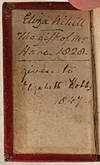 Eliza Kihill
The Gift of Mr
Hare. 1828.
given to
Elizabeth Hobbs
1847